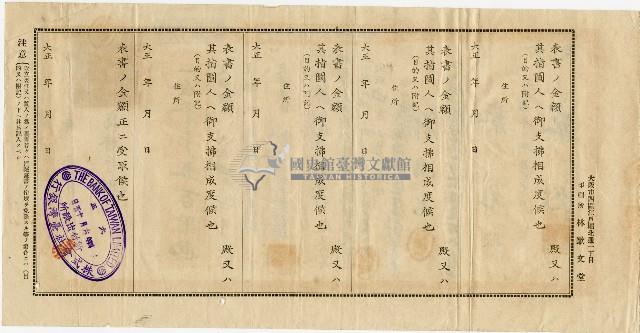 大阪市西區江戸堀北通一丁目
印刷所 林歐文堂
表書ノ金額
殿又ハ
其指圖人ヘ御支拂相成度候也
(目的又ハ附記)
住所
大正 年 月 日
表書ノ金額
殿又ハ
其指圖人ヘ御支拂相成度候也
(目的又ハ附記)
住所
大正 年 月 日
表書ノ金額
殿又ハ
其指圖人ヘ御支拂相成度候也
(目的又ハ附記)
住所
大正 年 月 日
表書ノ金額
殿又ハ
其指圖人ヘ御支拂相成度候也
(目的又ハ附記)
住所
大正 年 月 日
表書ノ金額正ニ受取候也
大正 年 月 日
注意
THE BANK OF TAIWAN LIMITED
株式會社臺灣銀行
國史館臺灣文獻館
TAIWAN HISTORICA